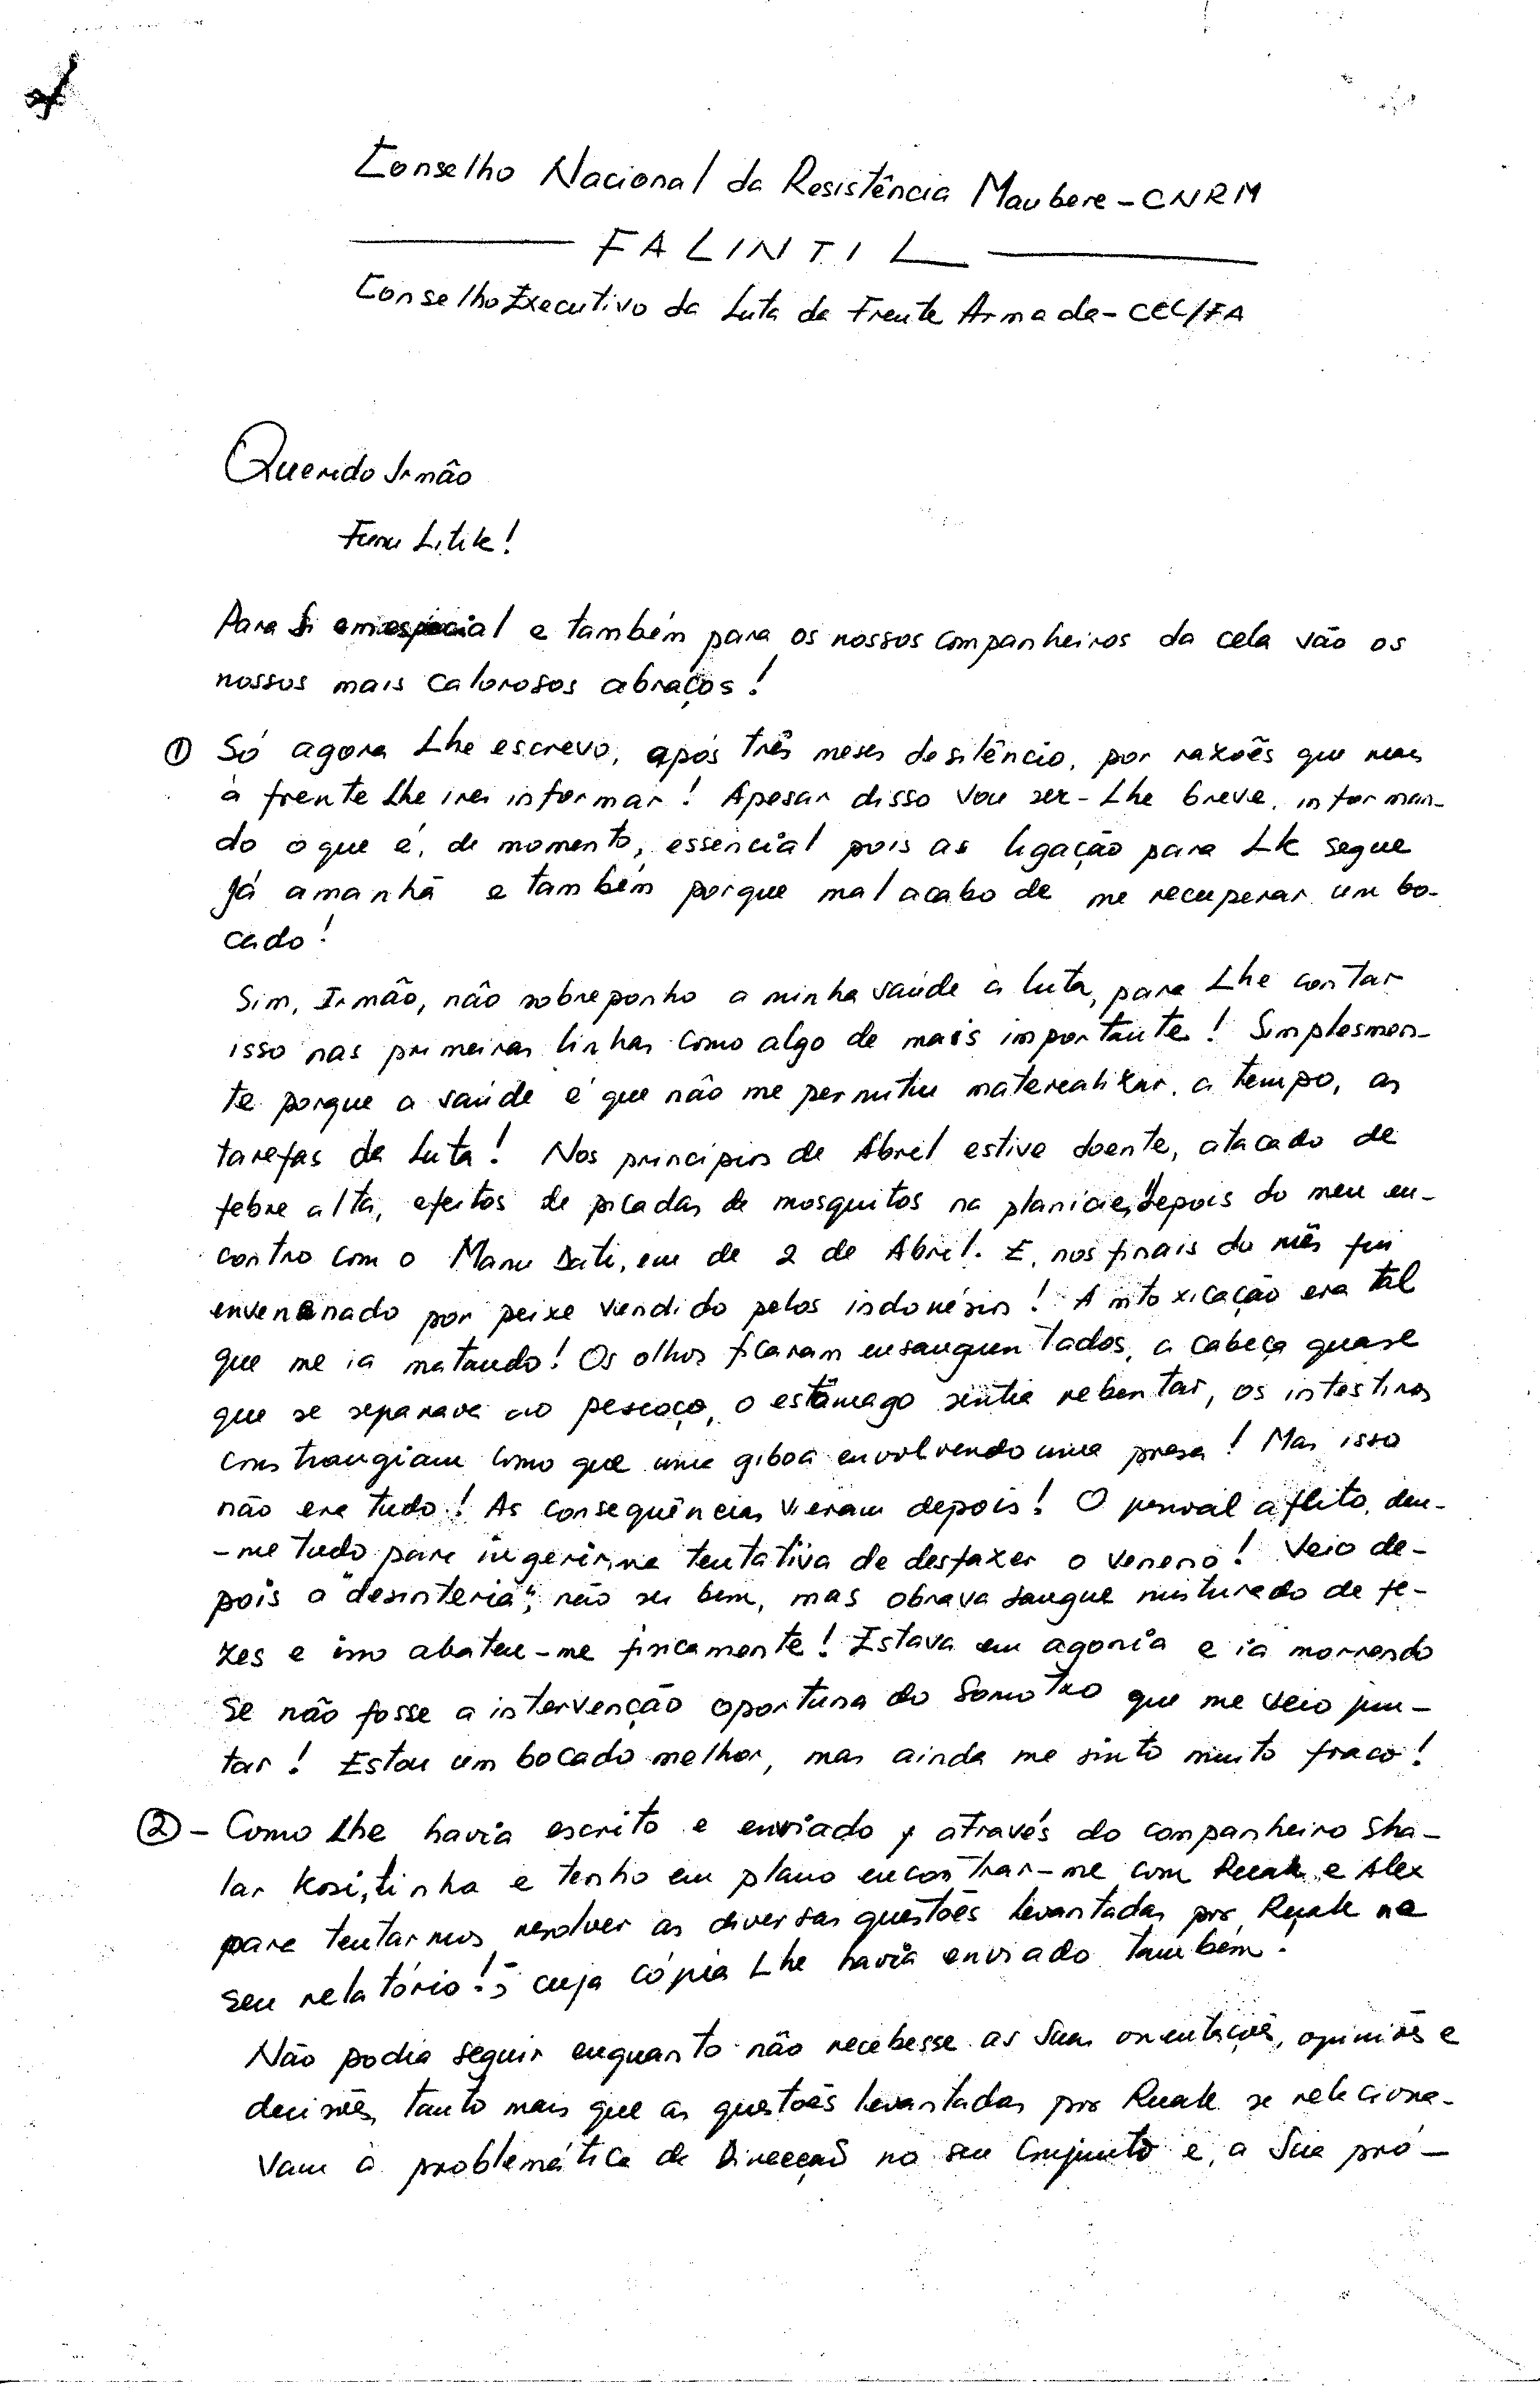 Conselho Nacional da Resistência Maubere - CNRM
FALINTIL
Conselho Executivo da Luta da Frente Armada - CEL/FA
Querido Irmão
Funu Litik!
Para Si em especial e também para os nossos companheiros da cela vão os
nossos mais calorosos abraços!
① Só agora Lhe escrevo, após três meses de silêncio, por razões que mais
à frente Lhe irei informar! Apesar disso vou ser-Lhe breve, informan-
do o que é, de momento, essencial pois as ligação para Lk segue
já amanhã e também porque mal acabo de me recuperar um bo-
cado!
Sim, Irmão, não sobreponho a minha saúde à luta, para Lhe contar
isso nas primeiras linhas como algo de mais importante! Simplesmen-
te porque a saúde é que não me permitiu materealizar, a tempo, as
tarefas da Luta! Nos princípios de Abril estive doente, atacado de
febre alta, efeitos de picadas de mosquitos na planície, depois do meu en-
contro com o Manu Dati, em de 2 de Abril. E, nos finais do mês fui
envenenado por peixe vendido pelos indonésios! A intoxicação era tal
que me ia matando! Os olhos ficaram ensanguentados, a cabeça quase
que se separava do pescoço, o estômago sentia rebentar, os intestinos
constrangiam como que uma giboa envolvendo uma presa! Mas isso
não era tudo! As consequências vieram depois! O pessoal aflito, deu-
-me tudo para ingerir, na tentativa de desfazer o veneno! Veio de-
pois a "desinteria", não sei bem, mas obrava sangue misturado de fe-
zes e isso abateu-me fisicamente! Estava em agonia e ia morrendo
se não fosse a intervenção oportuna do Somotxo que me veio jun-
tar! Estou um bocado melhor, mas ainda me sinto muito fraco!
② - Como Lhe havia escrito e enviado, através do companheiro Sha-
lar Kosi, tinha e tenho em plano encontrar-me com Ruak e Alex
para tentarmos resolver as diversas questões levantadas por Ruak no
seu relatório!, cuja cópia Lhe havia enviado também!
Não podia seguir enquanto não recebesse as Suas orientações, opiniões e
decisões, tanto mais que as questões levantadas por Ruak se relaciona-
vam à problemática da Direcção no seu Conjunto e, a Sua pró-